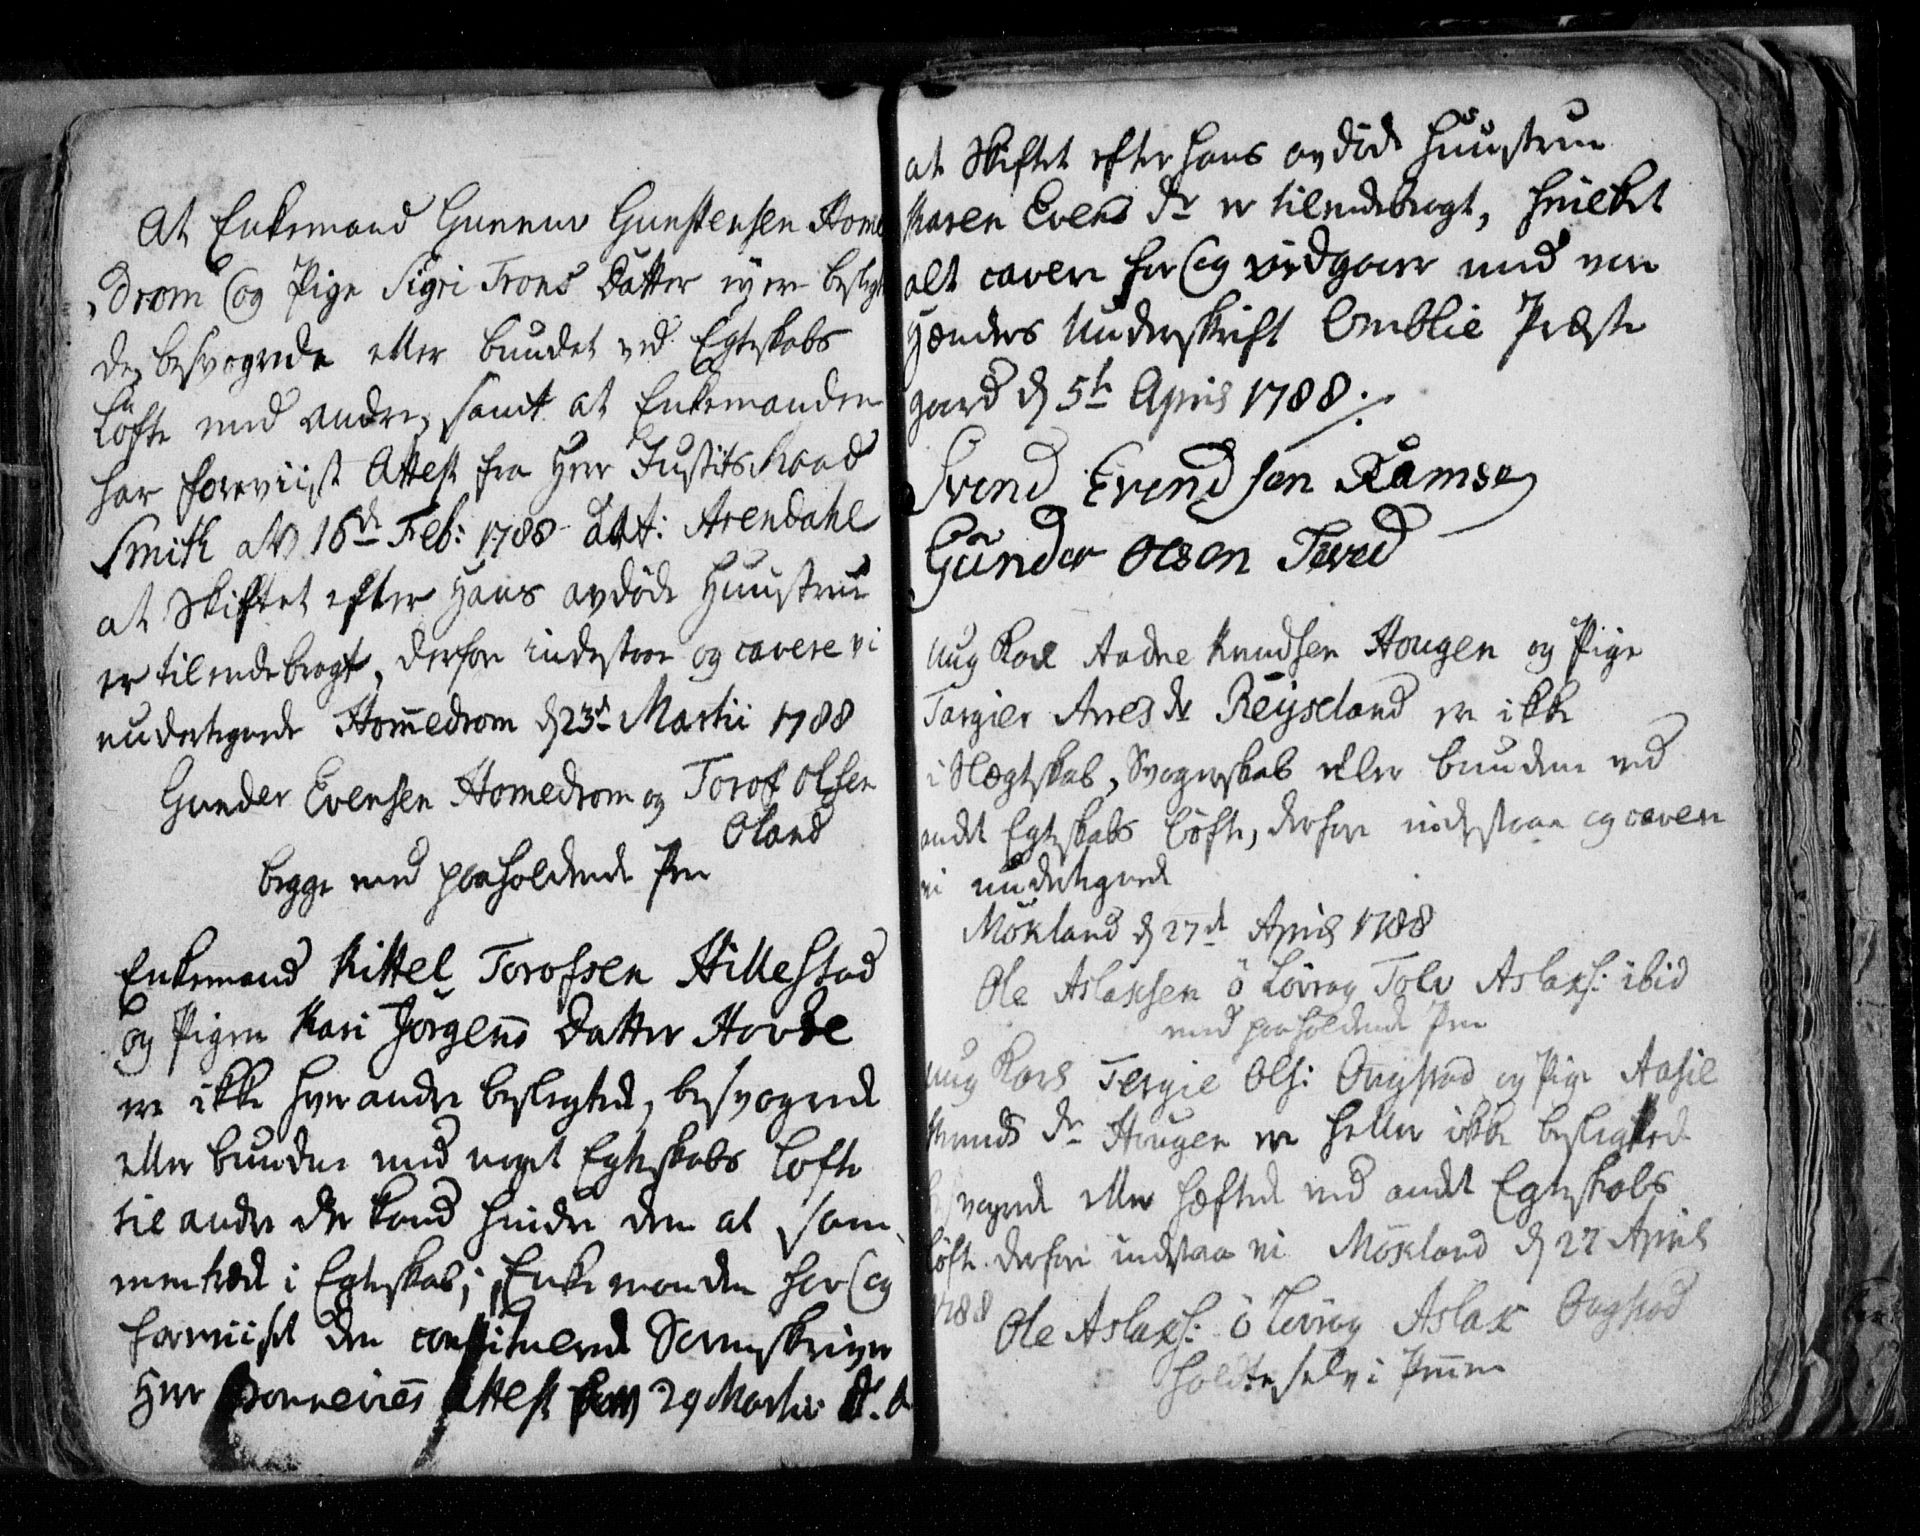 At Enkemand Gunnuv Gunstensen Home
drom og Pige Sigri Trons Datter ey ere beslegte
de, besvogrede eller bundet ved Egteskabs
Løfte med andre, samt at Enkemanden
har foreviist Attest fra Herr Justits Raad
Smith af 16de Feb: 1788 dat: Arendahl
at Skiftet efter Hans avdøde Huustrue
er tilendebragt, derfore indestaae og cavere vi
undertegnede Hommedrom d 23de Martii 1788
Gunder Evensen Homedrom og Torof Olsen
Oland
begge med paaholdende Pen
Enkemand Kittel Torofsen Hillestad
og Pigen Kari Jørgens Datter Hovde
ere ikke hverandre beslegtede, besvogrede
eller bunden med noget Egteskabs Løfte
til andre der kand hindre dem at sam
mentræde i Egteskab; Enkemanden har og
foreviist den constituerede Sorenskriver
Herr Attest 29 Martii d. A
at Skiftet efter hans avdøde Huustrue
Karen Evens dr er tilendebragt, hvilket
alt cavere for og vedgaaer med vore
Hænders Underskrift Omblie Præste
gaard d 5te April 1788 ./.
Svend Evendsen Ramse
Gunder Olsen Teved
Ung Karl Aadne Knudsen Hougen og Pige
Targier Arres dr Reyseland ere ikke
i Slægtskab, Svogerskab eller bundne ved
andet Egteskabs Løfte, derfore indestaae og cavere
vi undertegnede
Mökland d 27de April 1788
Ole Aslaksen ö Løvrag Tolv Aslaks: ibid
med paaholdende Pen
Ung Karl Tergie Ols: Ougstad og Pige Aasil
Knuds dr Hougen ere heller ikke beslegtede
besvogrede eller hæftede ved andet Egteskabs
Løfte. derfore indstaae vi Mökland d 27 April
1788
Ole Aslaks: ö Løvrag Aslak Ougstad
holdte selv i Pennen